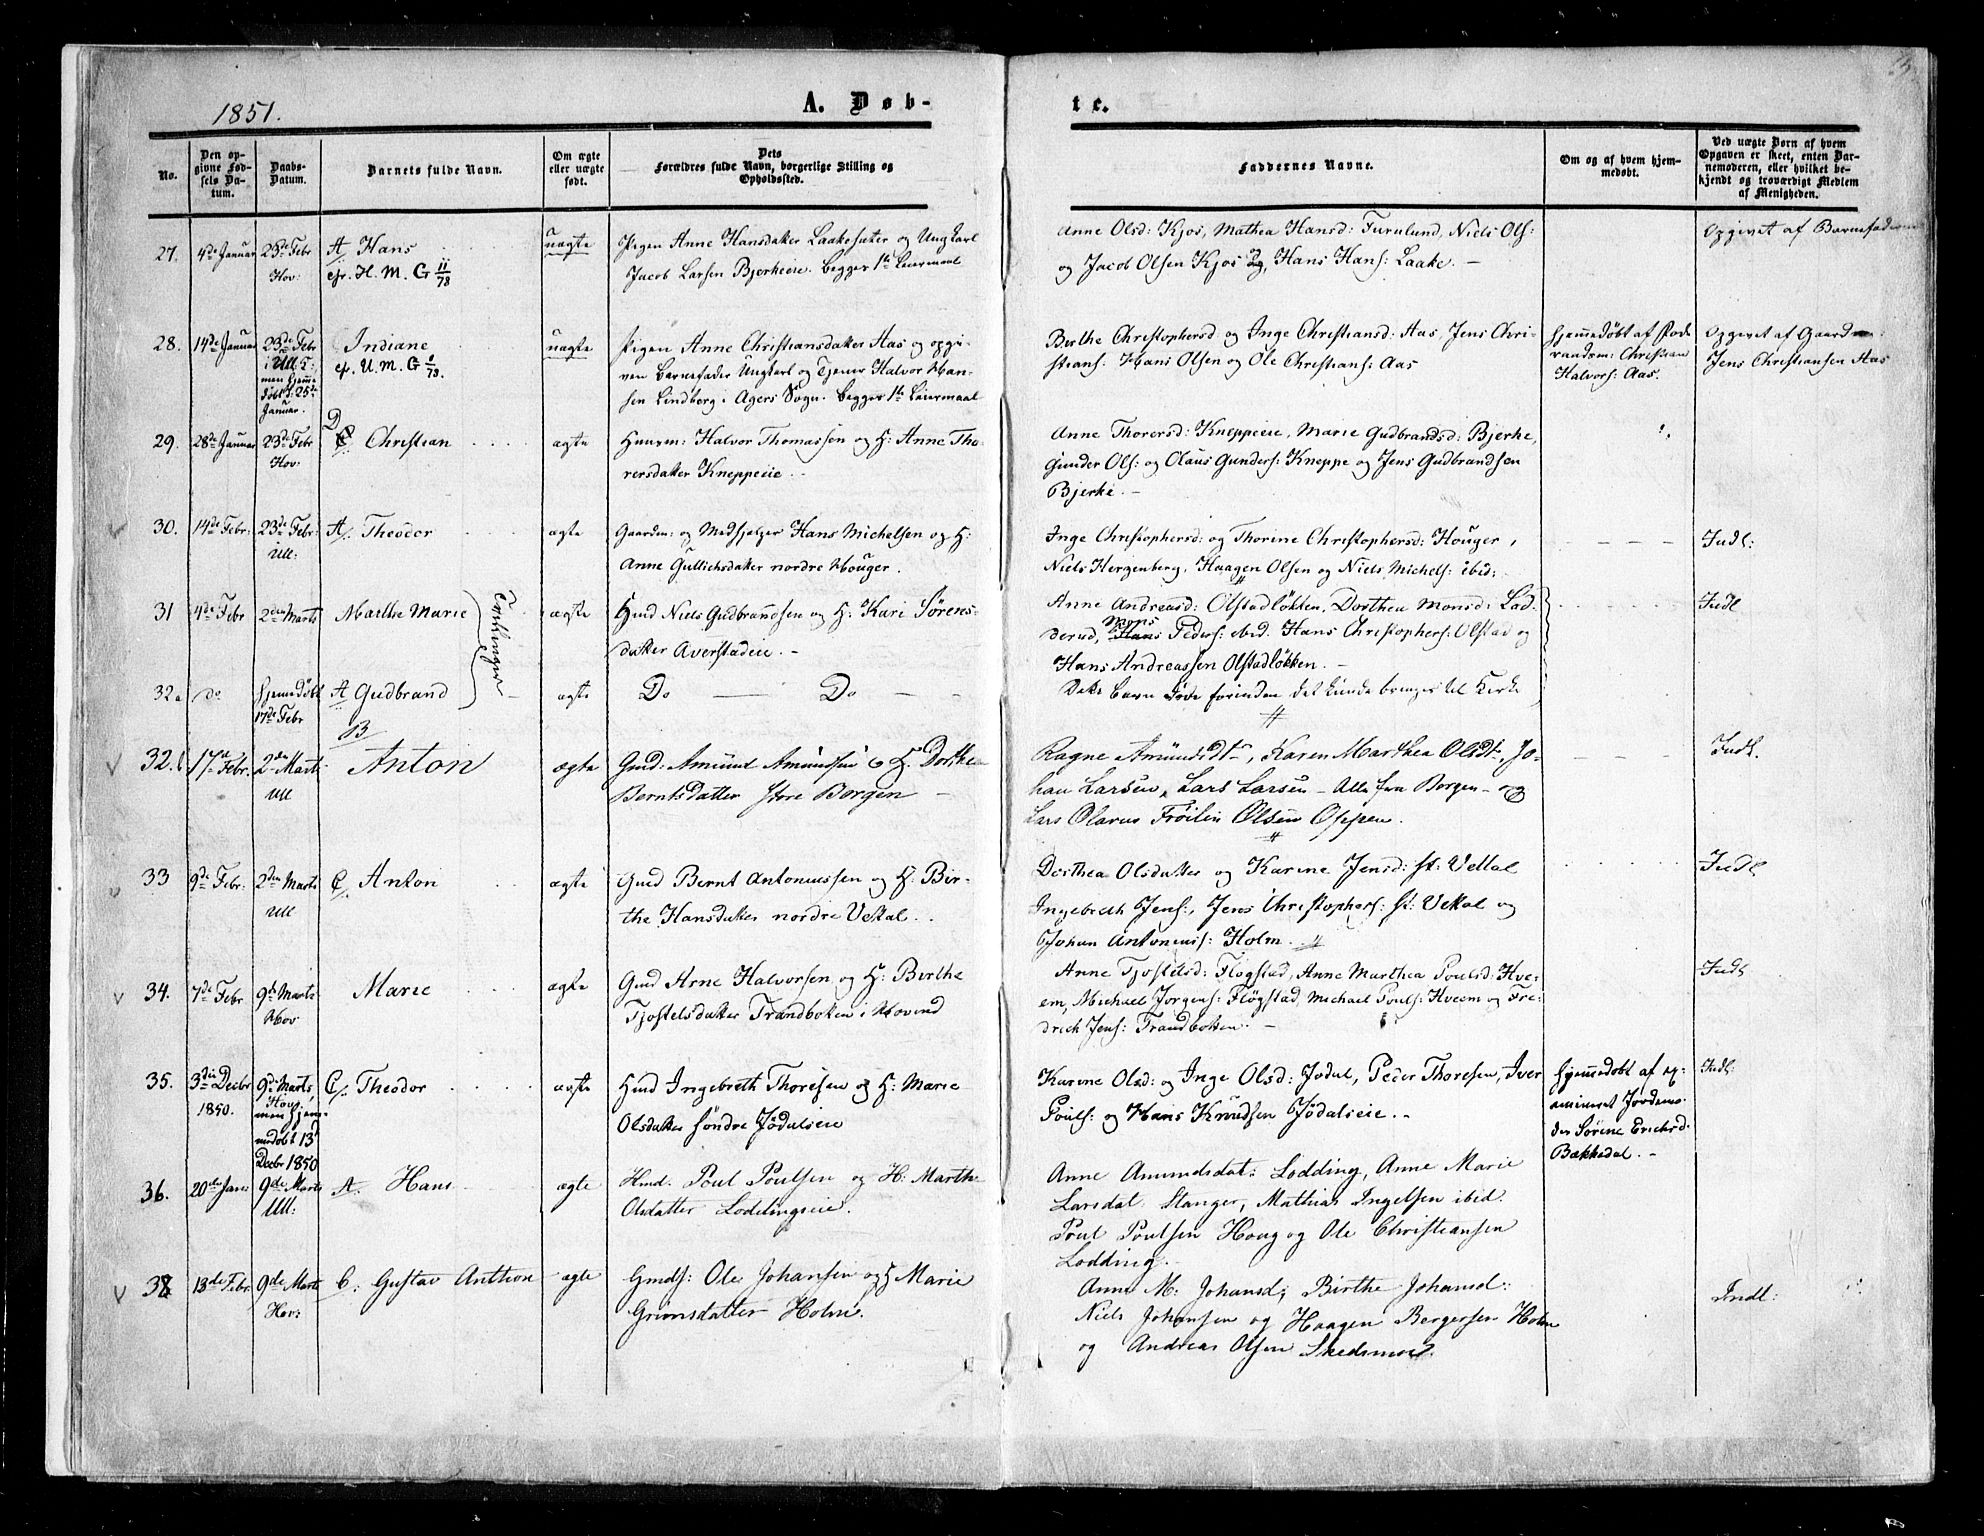 1851.
A. Døb-
te.
No.
Den op-
givne Fød-
sels Da-
tum.
Daabs-
Datum.
Barnets fulde Navn.
Om ægte
eller uægte
født.
Dets
Forældres fulde Navn, borgerlige Stilling og
Opholdssted.
Faddernes Navne.
Om og af hvem hjem-
medøbt.
Ved uægte Børn af hvem
Opgaven er skeet, enten Bar-
nemoderen, eller hvilket be-
kjendt og troværdigt Medlem
af Menigheden.
27. 4de Januar 23de Febr
Hov.
A/. Hans
cfr. H. M. G 11/78
uægte
Pigen Anne Hansdatter Laakesæter og Ungkarl
Jacob Larsen Bjerkeeie. begges 1ste Leiermaal
Anne Olsd: Kjos, Mathea Hansd: Furulund, Niels Ols:
og Jacob Olsen Kjos og, Hans Hans: Laake. –
Opgivet af Barnefaderen
28. 14de Januar 23de Febr
i Ull: K:
men hjemme
døbt d: 25de
Januar.
Indiane
cfr. U. M. G 1/79.
uægte
Pigen Anne Christiansdatter Aas og opgi-
ven Barnefader Ungkarl og Tjener Halvor Han-
sen Lindberg i Agers Sogn. begges 1ste Leiermaal
Berthe Christophersd og Inge Christiansd: Aas, Jens Chri-
stians: Hans Olsen og Ole Christians: Aas
Hjemmedøbt af
Christian
Halvors: Aas.
Opgivet af Gaardm:
Jens Christiansen Aas
29. 28de Januar 23de Febr
Hov:
Christian
ægte
Huusm: Halvor Thomassen og H: Anne Tho-
rersdatter Kneppeeie –
Anne Thorersd: Kneppeeie, Marie Gudbrandsd: Bjerke,
Gunder Ols: og Olaus Gunders: Kneppe og Jens Gudbrandsen
Bjerke. –
30. 14de Febr: 23de Febr:
Ull:
A/. Theodor
ægte
Gaardm: og Medhjelper Hans Michelsen og H:
Anne Gullichsdatter nordre Houger.
Inge Christophersd: og Thorine Christophersd: Houger,
Niels Herzenberg, Haagen Olsen og Niels Michels: ibid:
Indl:
31 4de Febr 2den Marts
Marthe Marie
Tvillinger
ægte
Hmd Niels Gudbrandsen og H: Kari Sørens-
datter Averstadeie. –
Anne Andreasd: Olstadløkken, Dorthea Monsd: Lad-
derud, Hans Mons Peders: ibid. Hans Christophers: Olstad og
Hans Andreassen Olstadløkken. –
Indl
32a do Hjemmedøbt
17de Febr
A/ Gudbrand
ægte
Do Do
Dette Barn døde forinden det kunde bringes til Kirke
32.b 17de Febr. 2den Marts
Ull
B
Anton
ægte
Gmd: Amund Amundsen og H. Dorthe
Berntsdatter store Borgen –
Ragne Amundsdt, Karen Marthea Olsdt, Jo-
han Larsen, Lars Larsen – Alle fra Borgen – og
Lars Olavus Frøilin Olsen Oppen.
Indl.
33 9de Febr: 2den Marts
Ull
C/. Anton
ægte
Gmd Bernt Antoniussen og H: Bir-
the Hansdatter nordre Vettal.
Dorthea Olsdatter og Karine Jensd: st: Vettal
Ingebreth Jens:, Jens Christophers: st: Vettal og
Johan Antonius: Holm.
Indl
34. 7de Febr 9de Marts
Hov
Marie
ægte
Gmd Arne Halvorsen og H: Birthe
Tjostelsdatter Trandbakken i Hovind
Anne Tjostelsd: Flogstad, Anne Marthea Pouls​d: Hve-
em, Michael Jørgens: Fløgstad, Michael Pouls: Hveem og Fre-
drich Jens: Trandbakken. –
Indl
35. 3die Decbr
1850.
9de Marts
Hov:
men hjem-
medøbt 13d
Decbr 1850
C/. Theodor
ægte
Hmd Ingebreth Thoresen og H: Marie
Olsdatter søndre Jødaleie
Karine Olsd: og Inge Olsd: Jødal, Peder Thoresen, Iver
Pouls: og Hans Knudsen Jødalseie. –
Hjemmedøbt af ex-
amineret Jordemo-
der Sørine Erichsd.
Bækkedal. –
Indl
36. 20de Jan: 9de Marts
Ull:
A. Hans
ægte
Hmd. Poul Poulsen og H: Marthe
Olsdatter Loddingseie.
Anne Amundsdat: Lodding, Anne Marie
Larsdat. Stanger, Mathias Ingelsen ibid.
Poul Poulsen Haug og Ole Christiansen
Lodding.
38 13de Febr. 9de Marts
Hov:
C: Gustav Anthon
ægte
Gmds: Ole Johansen og H Marie
Grimsdatter Holm.
Anne M: Johansd; Birthe Johansd:
Niels Johansen og Haagen Bergersen Holm
og Andreas Olsen Skedsmoe.
Indl: